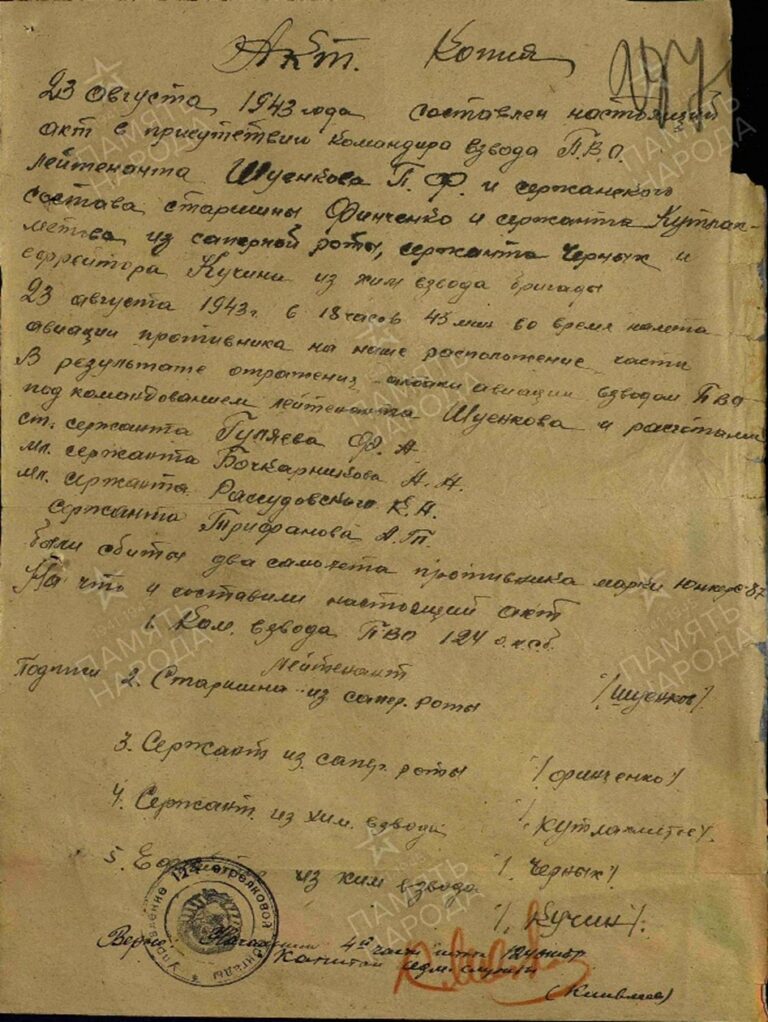 Акт. Копия
23 августа 1943 года составлен настоящий
акт в присутствии командира взвода П.В.О.
лейтенанта Шуенкова П. Ф. и сержанского
состава старшины Финченко и сержанта Кутлах-
метова из саперной роты, сержанта Черных и
ефрейтора Кучина из хим взвода бригады
23 августа 1943 г. в 18 часов 45 мин во время налета
авиации противника на наше расположение части
В результате отражения атаки авиации взводом ПВО
под командованием лейтенанта Шуенкова и расчетами
ст. сержанта Гуляева Ф. А.
мл. сержанта Бочкарникова А. Н.
мл. сержанта Рассудовского К. Н.
сержанта Трифанова А. П.
были сбиты два самолета противника марки Юнкерс-87
На что и составили настоящий акт
1. Ком. взвода ПВО 124 о.с.б.
лейтенант /Шуенков/.
Подписи 2. Старшина из сапер. роты
/Финченко/
3. Сержант из сапер. роты
/Кутлахметов/.
4. Сержант из хим. взвода
/Черных/
5. из хим взвода
/Кучин/.
Управление 124 стрелковой бригады
Верно: Начальник 4й части штаба 124
капитан адм. службы
ПАМЯТЬ НАРОДА